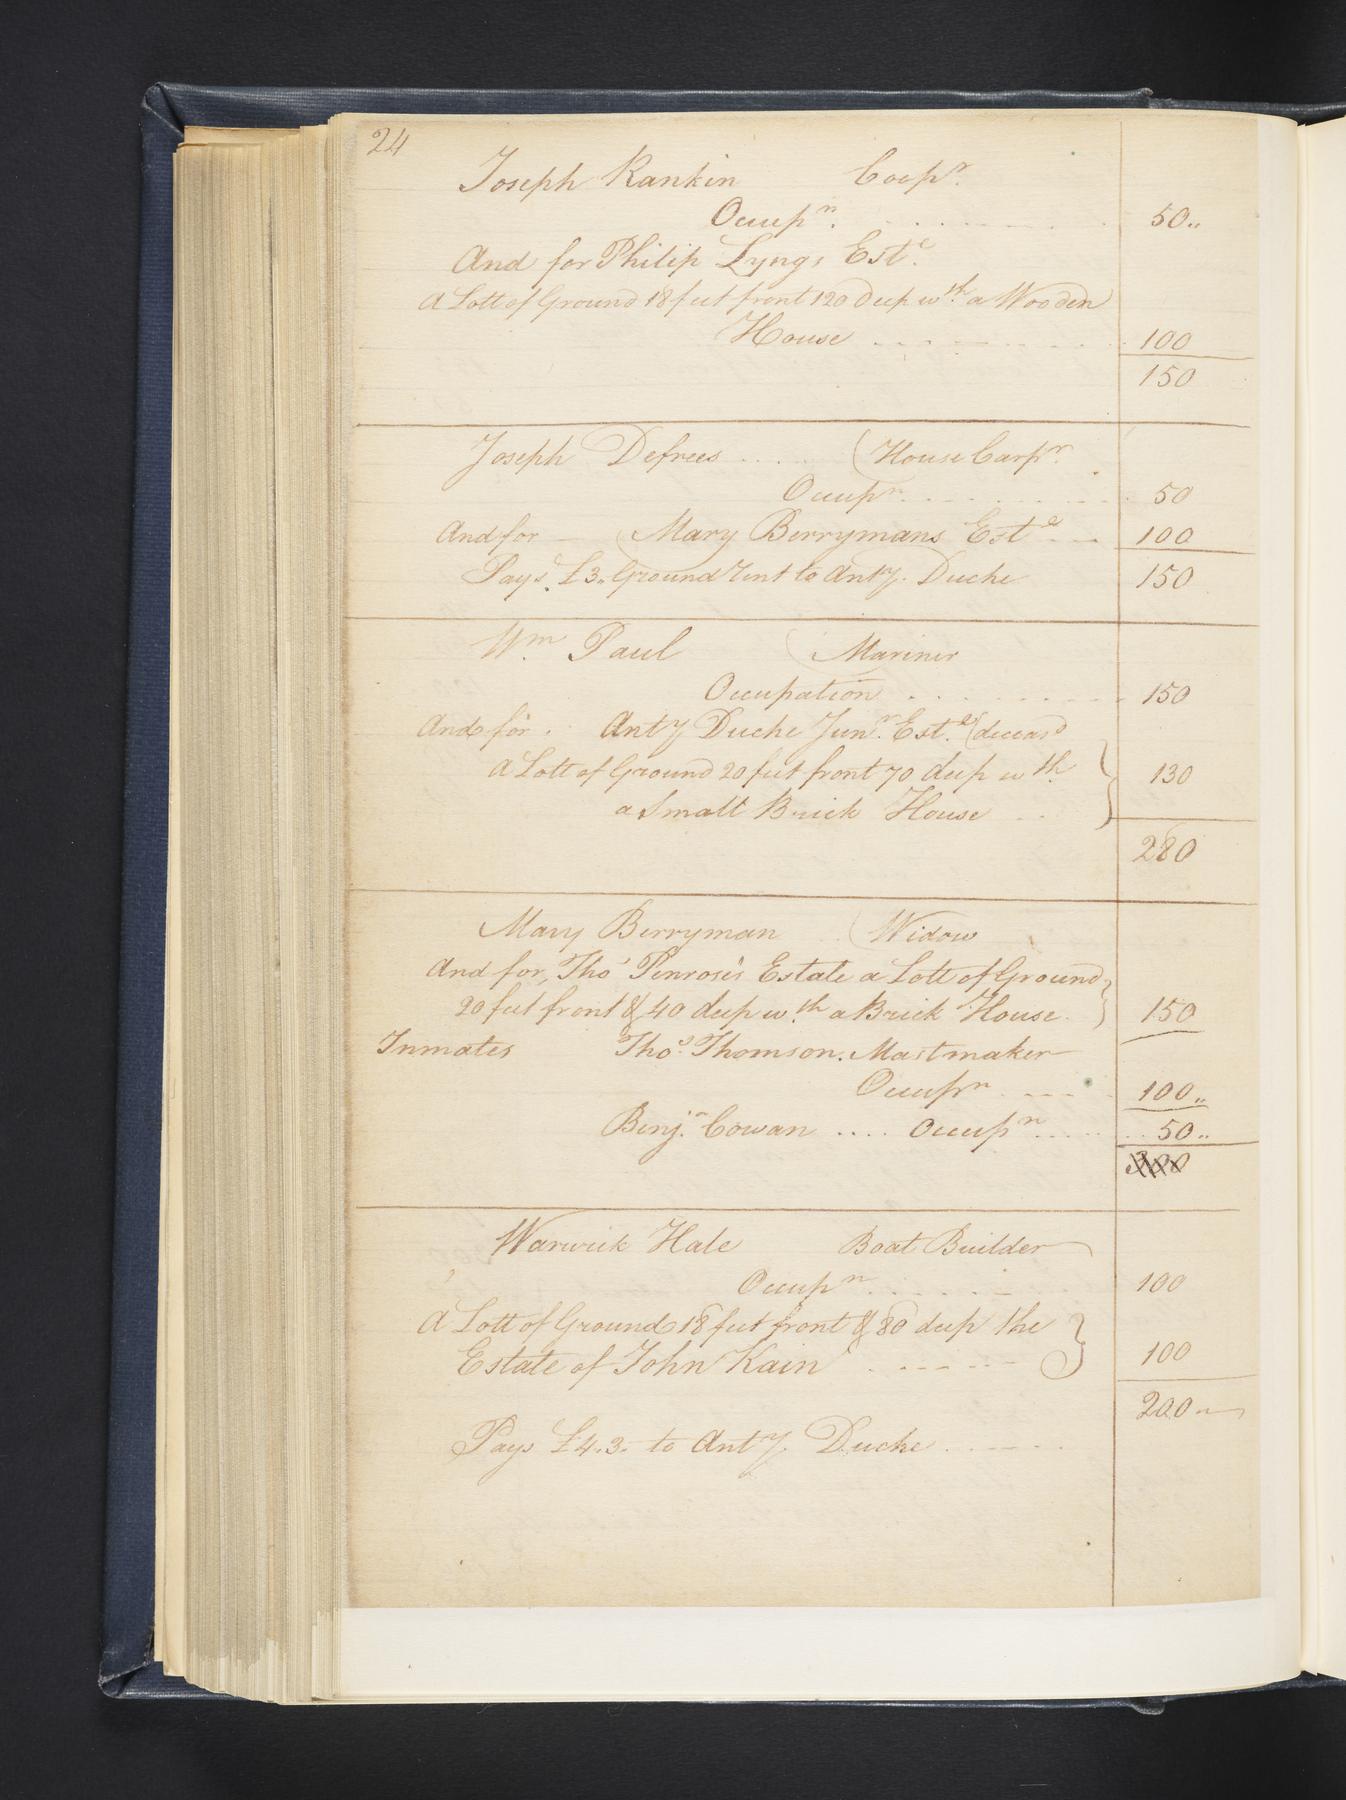 24
Joseph Rankin Coopr.
Occupn. 50
And for Philip Lyngs Este.
A Lott of Ground 18 feet front 120 deep wth a Wooden
House 100
150
Joseph Defrees (House Carpr.
Occupn. 50
And for Mary Berrymans Este 100
Pays £3. Ground Rent to Anty. Duche 150
Wm. Paul (Mariner
Occupation 150
And for Anty Duche Junr. Este. (deceasd
A Lott of Ground 20 feet front 70 deep wth
a Small Brick House 130
280
Mary Berryman (Widow
And for, Tho' Penrose's Estate a Lott of Ground
20 feet front & 40 deep wth a Brick House. 150
Inmates Thos. Thomson. Mastmaker
Occupn 100
Benjn. Cowan .... Occupn 50
300
Warwick Hale Boat Builder
Occupn 100
A Lott of Ground 18 feet front & 80 deep the
Estate of John Kain 100
200
Pays £4.3. to Anty. Duche